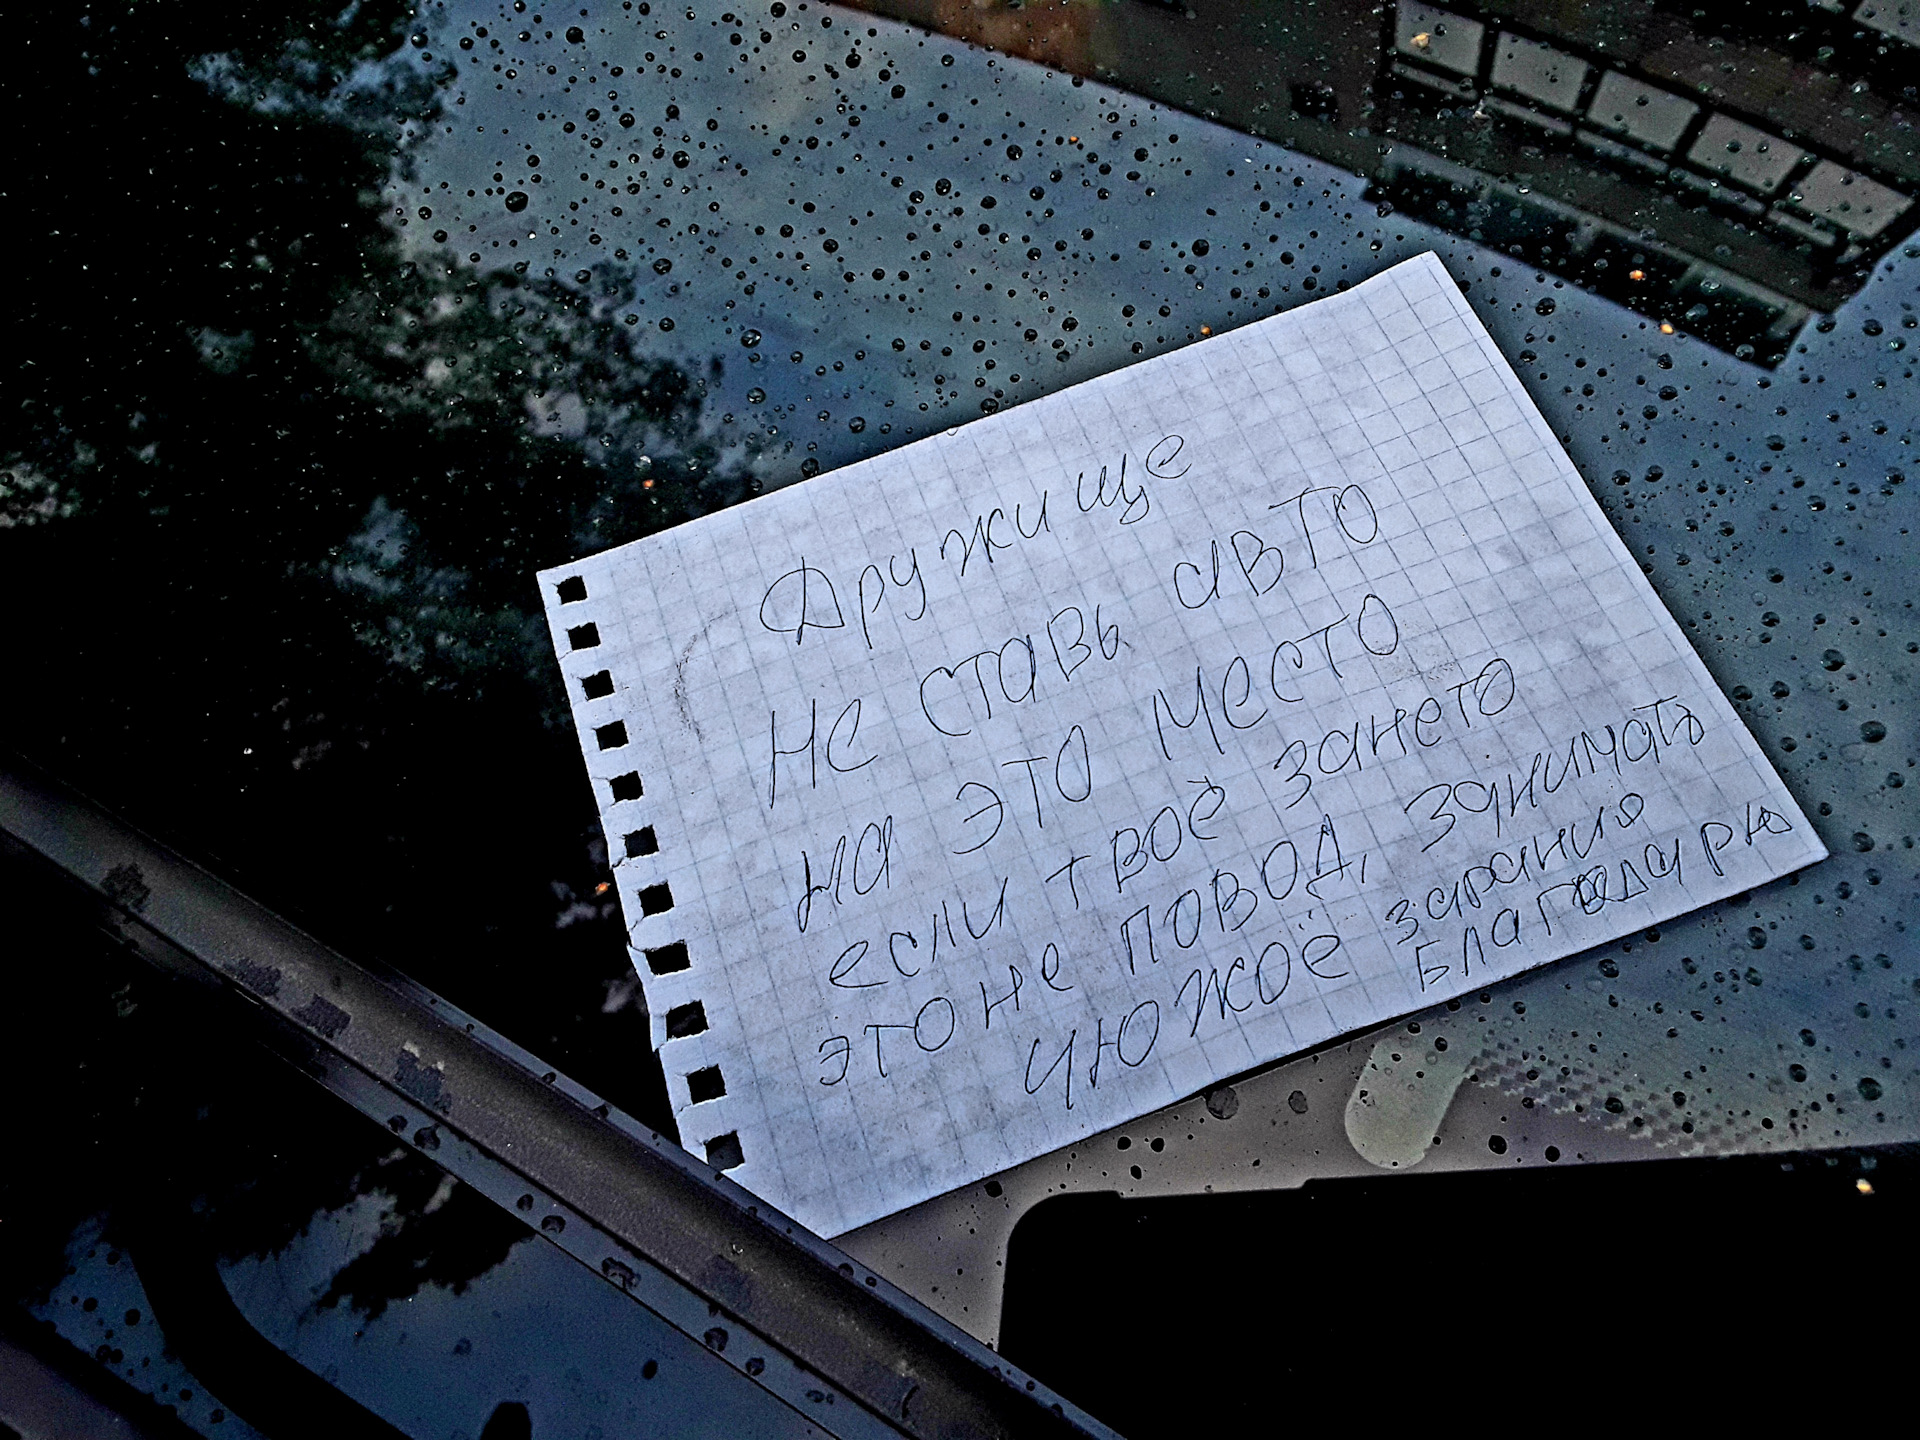 Дружище
не ставь авто
на это место
если твоё зането
это не повод, занимать
чюжоё зарание
благодарю